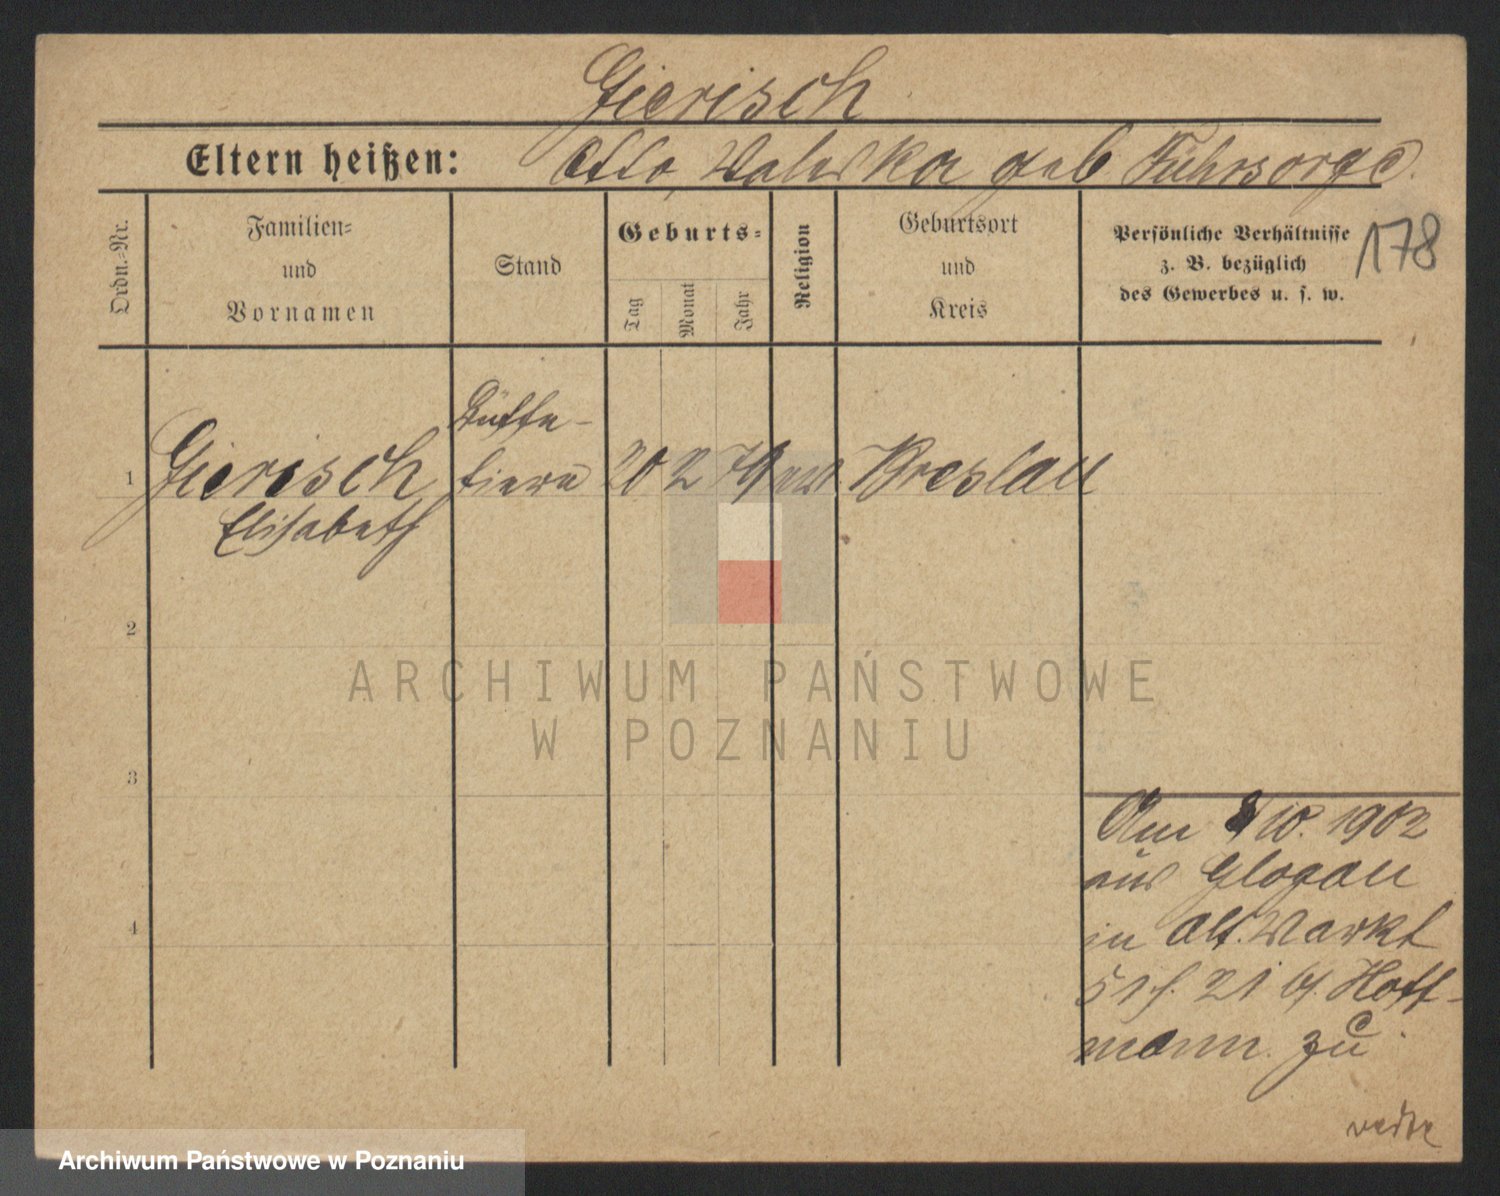 Gierisch
Eltern heißen: Otto, Waleska geb Fuhrsorge.
Ordn.-Nr.
Familien-
und
Vornamen
Stand
Geburts-
Tag
Monat
Jahr
Religion
Geburtsort
und
Kreis
Persönliche Verhältnisse
z. B. bezüglich
des Gewerbes u. s. w.
178
1 Gierisch
Elisabeth
Büffe-
tiere
20 2 79
Breslau
2
3
4
Am 8/10. 1902
aus Glogau
in Alt. Markt
51 21 Hoff-
mann. zu
ARCHIWUM PAŃSTWOWE
W POZNANIU
Archiwum Państwowe w Poznaniu